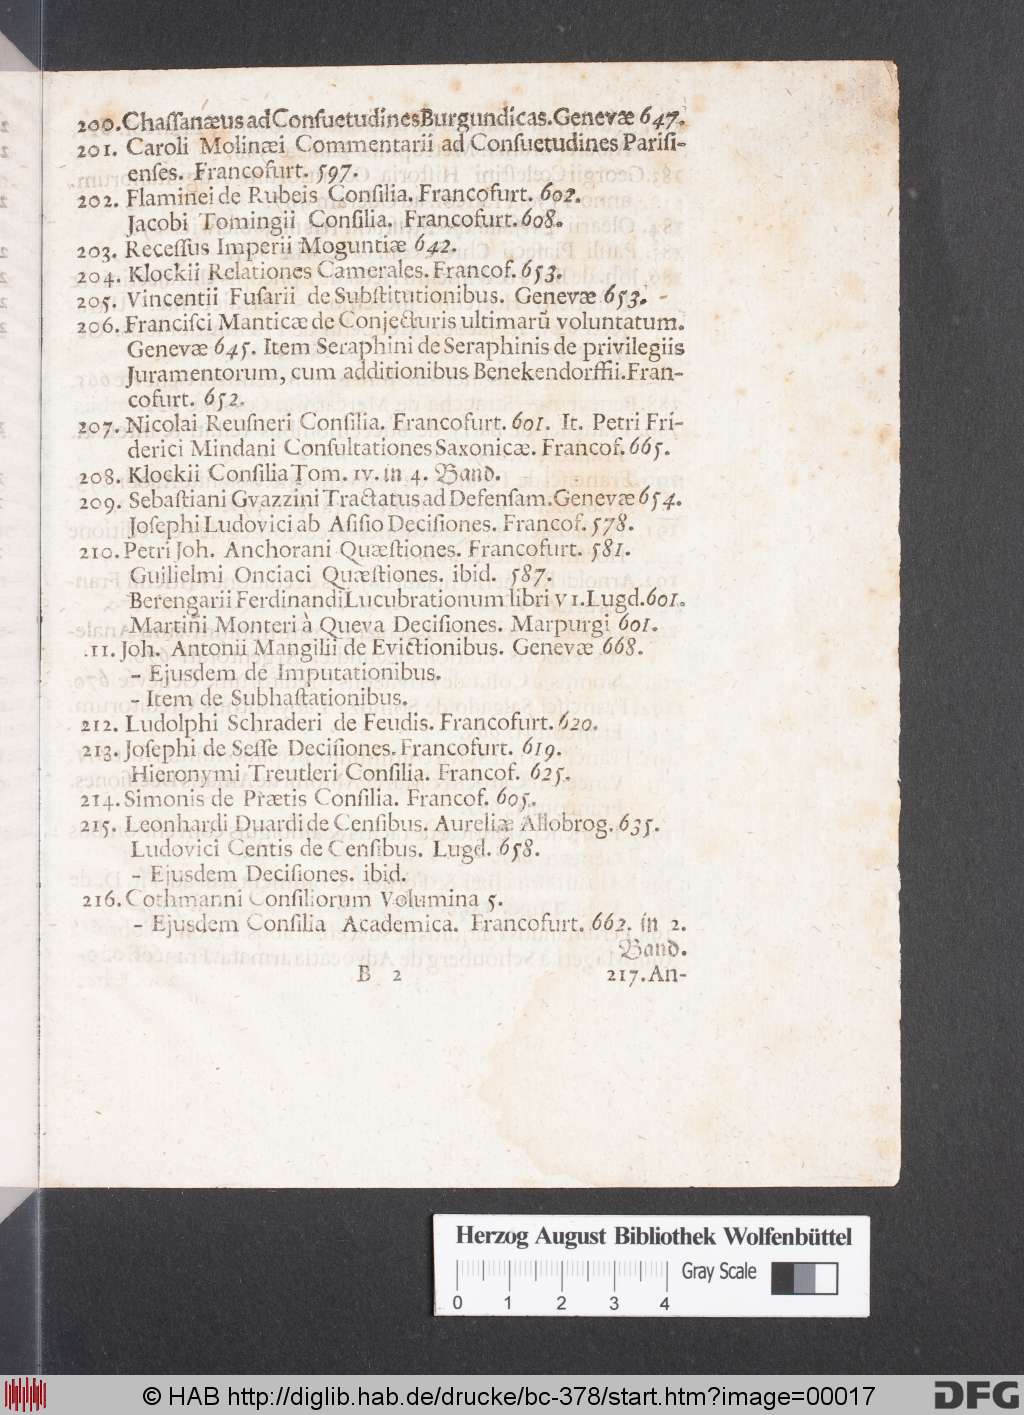 200. Chaſſanæus ad Conſuetudines Burgundicas. Genevæ 647.
201. Caroli Molinæi Commentarii ad Conſuetudines Pariſi-
enſes. Francofurt. 597.
202. Flaminei de Rubeis Conſilia. Francofurt. 602.
Jacobi Tomingii Conſilia. Francofurt. 608.
203. Receſſus Imperii Moguntiæ 642.
204. Klockii Relationes Camerales. Francof. 653.
205. Vincentii Fuſarii de Subſtitutionibus. Genevæ 653.
206. Franciſci Manticæ de Conjecturis ultimarũ voluntatum.
Genevæ 645. Item Seraphini de Seraphinis de privilegiis
Juramentorum, cum additionibus Benekendorffii. Fran-
cofurt. 652.
207. Nicolai Reuſneri Conſilia. Francofurt. 601. It. Petri Fri-
derici Mindani Conſultationes Saxonicæ. Francof. 665.
208. Klockii Conſilia Tom. IV. in 4. Band.
209. Sebaſtiani Gvazzini Tractatus ad Defenſam. Genevæ 654.
Joſephi Ludovici ab Aſiſio Deciſiones. Francof. 578.
210. Petri Joh. Anchorani Quæſtiones. Francofurt. 581.
Guilielmi Onciaci Quæſtiones. ibid. 587.
Berengarii Ferdinandi Lucubrationum libri VI. Lugd. 601.
Martini Monteri à Queva Deciſiones. Marpurgi 601.
.11. Joh. Antonii Mangilii de Evictionibus. Genevæ 668.
- Ejusdem de Imputationibus.
- Item de Subhaſtationibus.
212. Ludolphi Schraderi de Feudis. Francofurt. 620.
213. Joſephi de Seſſe Deciſiones. Francofurt. 619.
Hieronymi Treutleri Conſilia. Francof. 625.
214. Simonis de Prætis Conſilia. Francof. 605.
215. Leonhardi Duardi de Cenſibus. Aureliæ Allobrog. 635.
Ludovici Centis de Cenſibus. Lugd. 658.
- Ejusdem Deciſiones. ibid.
216. Cothmanni Conſiliorum Volumina 5.
- Ejusdem Conſilia Academica. Francofurt. 662. in 2.
Band.
B 2 217. An-
Herzog August Bibliothek Wolfenbüttel
Gray Scale
0 1 2 3 4
© HAB http://diglib.hab.de/drucke/bc-378/start.htm?image=00017
DFG